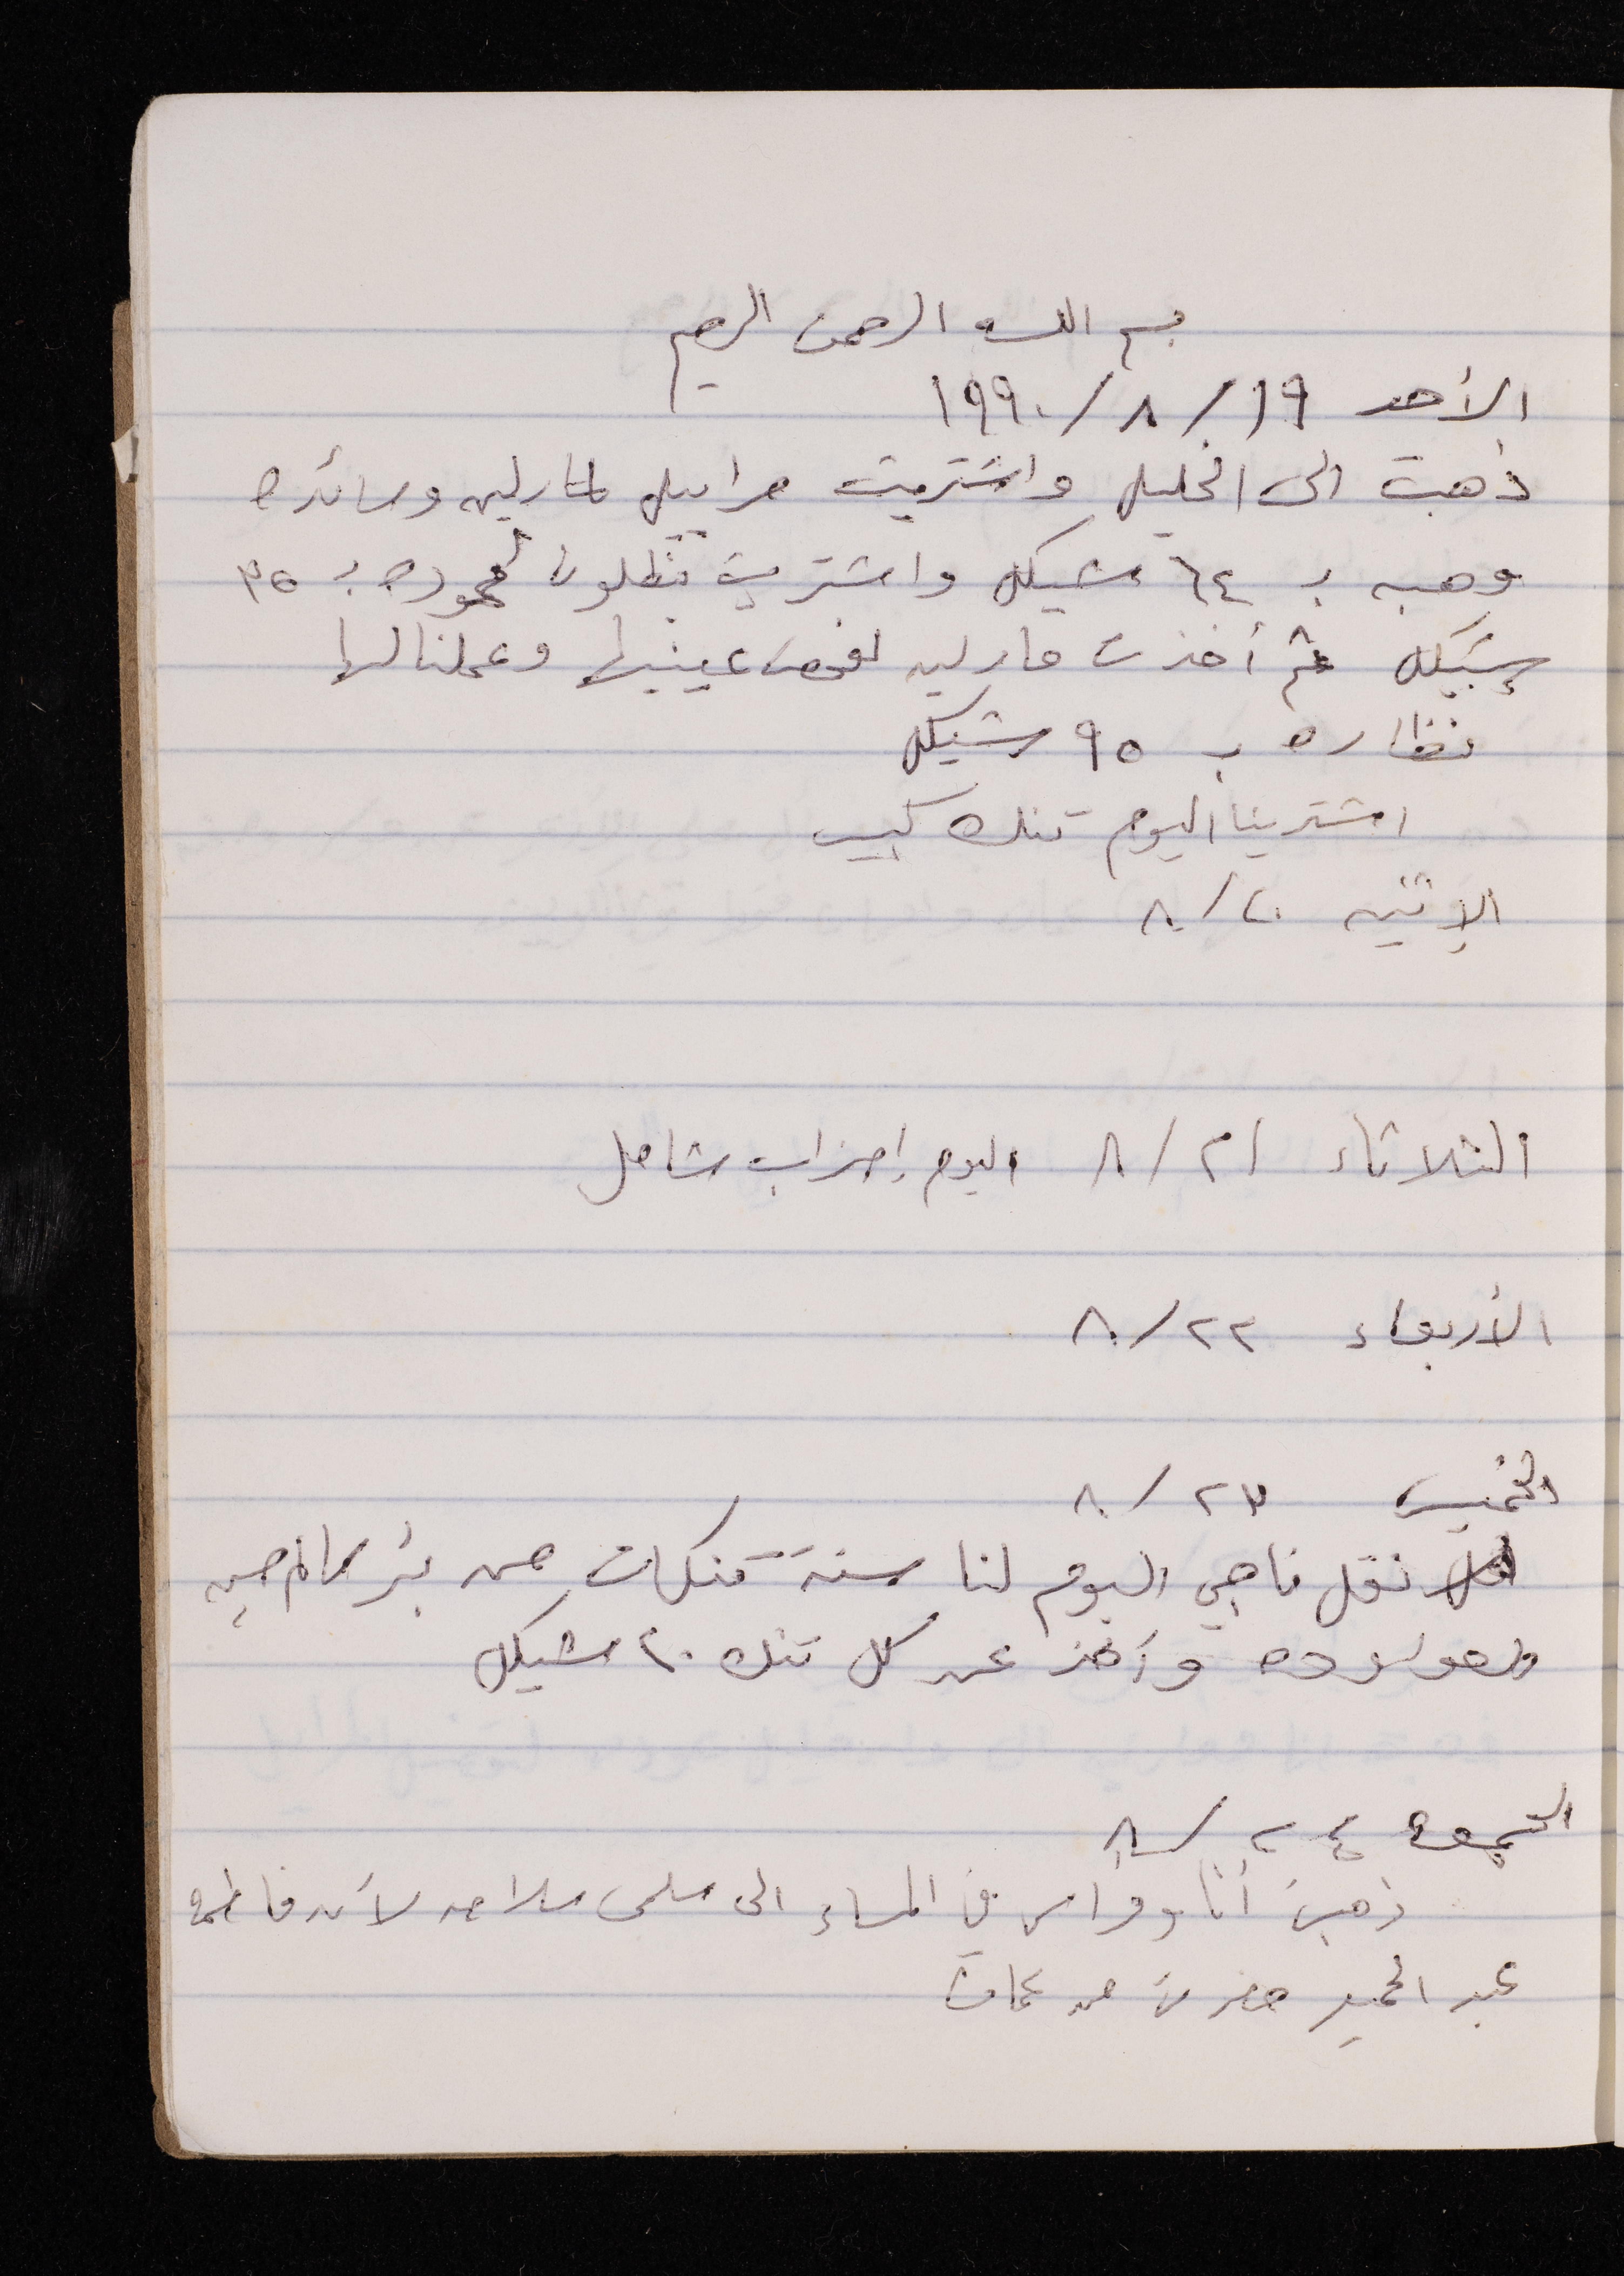 بسم الله الرحمن الرحيم
الأحد ١٩/٨/١٩٩٠
ذهبت الى الخليل واشتريت مراييل لمارلين وسائده
وهبه بـ ٦٤ شيكل واشتريت بنطلون لحموده بـ ٣٥
شيكل ثم أخذت مارلين لفحص عينيها وعملنا لها
نظاره بـ ٩٥ شيكل
اشترينا اليوم تنك كبير
الإثنين ٢٠/٨
الثلاثاء ٢١/٨ اليوم إضراب شامل
الأربعاء ٢٢/٨
الخميس ٢٣/٨
نقل ناجي اليوم لنا ستة تنكات من بئر سالم حسين
وأخذ عن كل تنك ٢٠ شيكل
الجمعة ٢٤/٨
ذهبت أنا وفراس في المساء الى سلمى سلامه لأن فاطمة
عبد الحميد حضرت من عمان